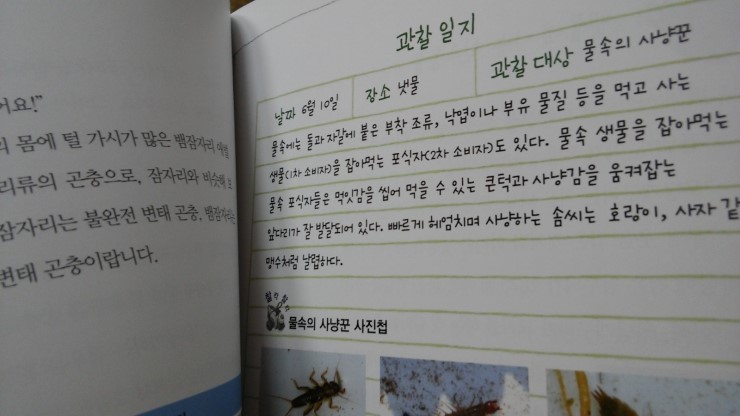 어요!"
의 몸에 털 가시가 많은 뱀잠자리
리류의 곤충으로, 잠자리와 비슷해
잠자리는 불완전 변태 곤충, 뱀잠자리는
변태 곤충이랍니다.
관찰 일지
날짜 6월 10일
장소 냇물
관찰 대상 물속의 사냥꾼
물속에는 돌과 자갈에 붙은 부착 조류, 낙엽이나 부유 물질 등을 먹고 사는
생물(1차 소비자)을 잡아먹는 포식자(2차 소비자)도 있다. 물속 생물을 잡아먹는
물속 포식자들은 먹잇감을 씹어 먹을 수 있는 큰턱과 사냥감을 움켜잡는
앞다리가 잘 발달되어 있다. 빠르게 헤엄치며 사냥하는 솜씨는 호랑이, 사자 같
맹수처럼 날렵하다.
물속의 사냥꾼 사진첩